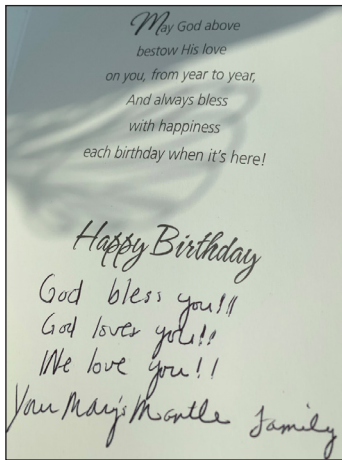 May God above
bestow His love
on you, from year to year,
And always bless
with happiness
each birthday when it's here!
Happy Birthday
God bless you!!
God loves you!!
We love you!!
Your Mary's Mantle Family